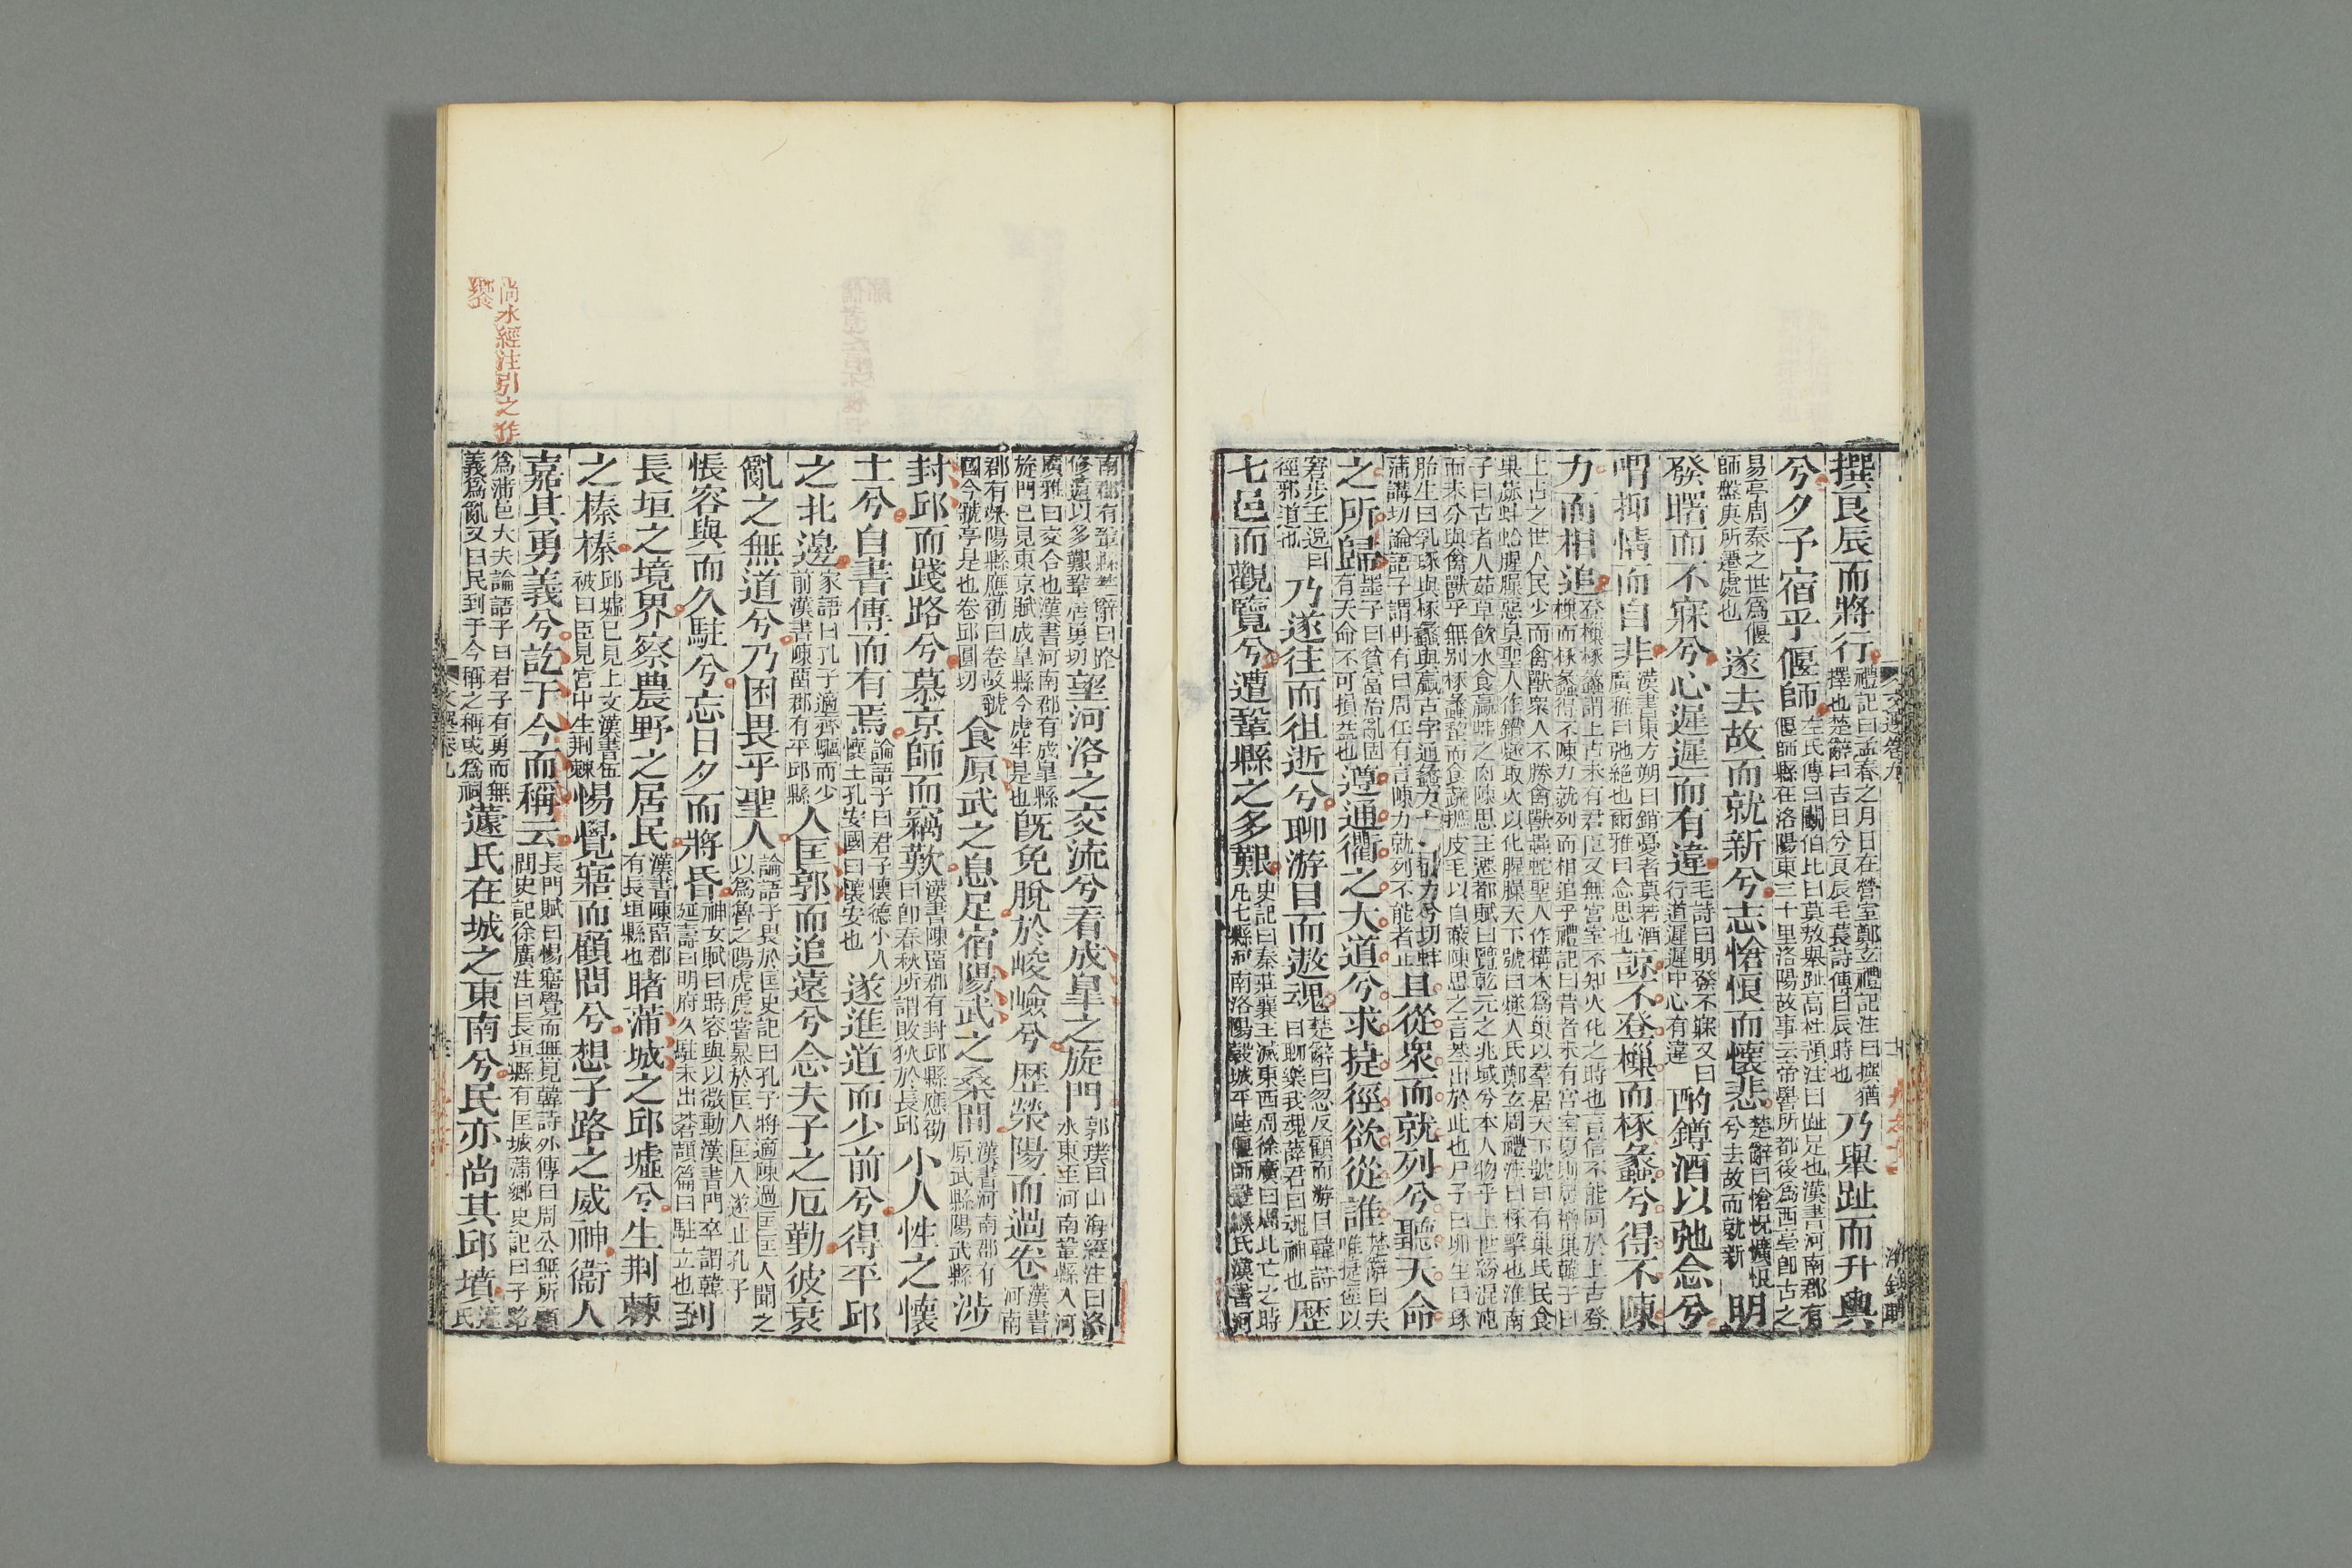 撰良辰而將行禮記曰孟春之月日在營室鄭玄禮記注曰撰猶擇也楚辭曰吉日兮良辰毛萇詩傳曰辰時也乃舉趾而升輿
兮夕予宿乎偃師左氏傳曰鬭伯比曰莫敖舉趾高杜預注曰趾足也漢書河南郡有偃師縣在洛陽東三十里洛陽故事云帝嚳所都後爲西亳卽古之
易亭周秦之世爲偃師盤庚所遷處也遂去故而就新兮志愴悢而懷悲楚辭曰愴怳懭悢兮去故而就新明
發曙而不寐兮心遲遲而有違毛詩曰明發不寐又曰行道遲遲中心有違酌鐏酒以弛念兮
喟抑情而自非漢書東方朔曰銷憂者莫若酒廣雅曰弛絕也爾雅曰念思也諒不登樔而椓蠡兮得不陳
力而相追登樔椓蠡謂上古未有君臣又無宮室不知火化之時也言信不能同於上古登樔而椓蠡得不陳力就列而相追乎禮記曰昔者未有宮室夏則居橧巢韓子曰
上古之世人民少而禽獸衆人不勝禽獸蟲蛇聖人作構木爲巢以羣居天下號曰有巢氏民食果蓏蚌蛤腥臊惡臭聖人作鑽燧取火以化腥臊天下號曰燧人氏鄭玄周禮注曰椓擊也淮南
子曰古者人茹草飲水食蠃蛖之肉陳思王遷都賦曰覽乾元之兆域兮本人物乎上世紛混沌而未分與禽獸乎無别椓蠡蜊而食蔬摭皮毛以自蔽陳思之言葢出於此也尸子曰卵生曰琢
胎生曰乳琢與椓蠡與蠃古字通蠡力戈切蛖蒲講切論語子謂冉有曰周任有言陳力就列不能者止且從衆而就列兮聽天命
之所歸墨子曰貧富治亂固有天命不可損益也遵通衢之大道兮求捷徑欲從誰楚辭曰夫唯捷徑以
窘步王逸曰徑邪道也乃遂往而徂逝兮聊游目而遨魂楚辭曰忽反顧而游目韓詩曰聊樂我魂薛君曰魂神也歷
七邑而觀覽兮遭鞏縣之多艱史記曰秦莊襄王滅東西周徐廣曰周比亡之時凡七縣河南洛陽穀城平陰偃師鞏緱氏漢書河
南郡有鞏縣楚辭曰路修遠以多艱鞏居勇切望河洛之交流兮看成皐之旋門郭璞曰山海經注曰洛水東至河南鞏縣入河
廣雅曰交合也漢書河南郡有成皐縣旋門巳見東京賦成皐縣今虎牢是也旣免脫於峻嶮兮歷滎陽而過卷漢書河南
郡有滎陽縣應劭曰卷故虢國今虢亭是也卷邱圓切食原武之息足宿陽武之桑間漢書河南郡有原武縣陽武縣涉
封邱而踐路兮慕京師而竊歎漢書陳畱郡有封邱縣應劭曰卽春秋所謂敗狄於長邱小人性之懷
土兮自書傳而有焉論語子曰君子懷德小人懷土孔安國曰懷安也遂進道而少前兮得平邱
之北邊家語曰孔子適齊驅而少前漢書陳畱郡有平邱縣入匡郭而追遠兮念夫子之厄勤彼衰
亂之無道兮乃困畏乎聖人論語子畏於匡史記曰孔子將適陳過匡匡人聞之以爲魯之陽虎虎嘗暴於匡人匡人遂止孔子
悵容與而久駐兮忘日夕而將昏神女賦曰時容與以微動漢書門卒謂韓延壽曰明府久駐未出蒼頡篇曰駐立也到
長垣之境界察農野之居民漢書陳畱郡有長垣縣也睹蒲城之邱墟兮生荆棘
之榛榛邱墟巳見上文漢書伍被曰臣見宮中生荆棘惕覺寤而顧問兮想子路之威神衞人
嘉其勇義兮訖于今而稱云長門賦曰惕寤覺而無見韓詩外傳曰周公無所顧問史記徐廣注曰長垣縣有匡城蒲鄉史記曰子路
爲蒲邑大夫論語子曰君子有勇而無義爲亂又曰民到于今稱之稱或爲祠蘧氏在城之東南兮民亦尚其邱墳蘧氏
尚水經注引之作
饗